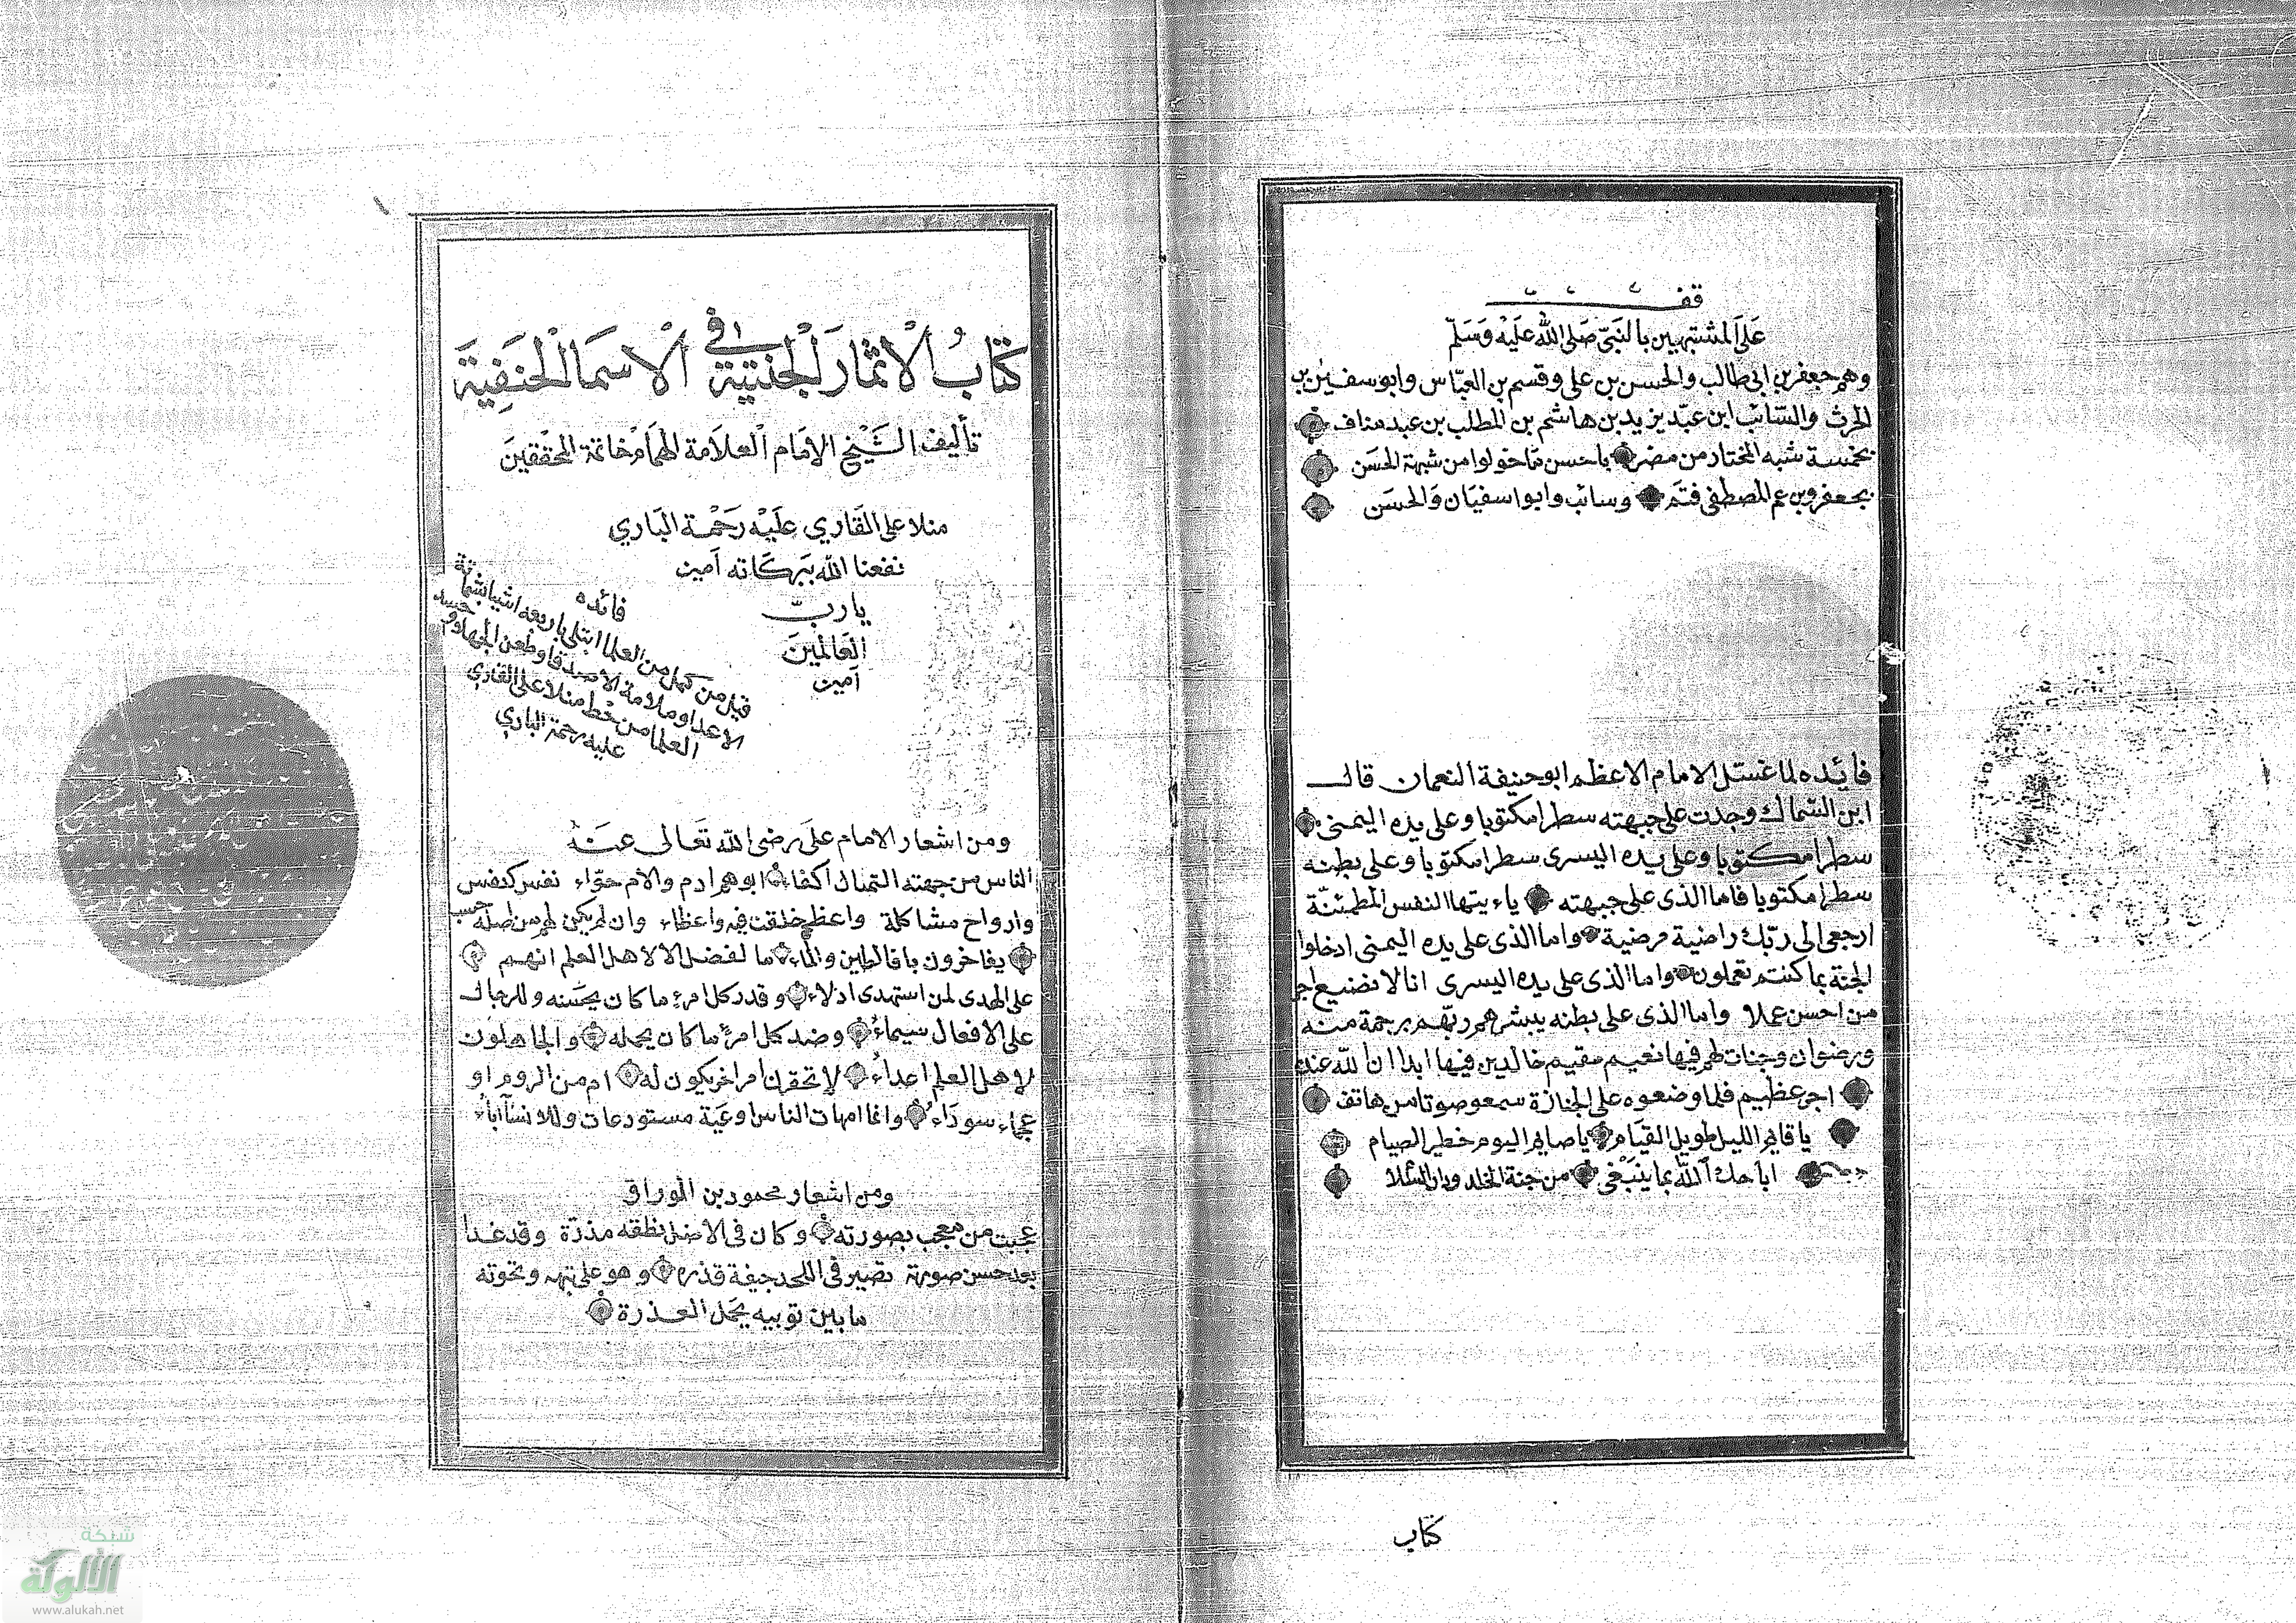 قف
على المشتبهين بالنبي صلى الله عليه وسلم
وهم جعفر بن ابى طالب والحسن بن على وقسم بن العباس وابو سفين بن
الحرث والسائب ابن عبد يزيد بن هاشم بن المطلب بن عبد مناف
بخمسة شبه المختار من مضر يا حسن ما خولوا من شبهة الحسن
بجعفر وبن عم المصطفى قثم وسائب وابوا سفيان والحسن
فايده لما غسل الامام الاعظم ابو حنيفة النعمان قال
ابن السماك وجدت على جبهته سطرا مكتوبا وعلى يده اليمنى
سطرا مكتوبا وعلى يده اليسرى سطرا مكتوبا وعلى بطنه
سطرا مكتوبا فاما الذى على جبهته ياء يتها النفس المطمئنة
ارجعى الى ربك راضية مرضية واما الذى على يده اليمنى ادخلوا
الجنة بما كنتم تعملون واما الذى على يده اليسرى انا لا نضيع اجر
من احسن عملا واما الذى على بطنه يبشرهم ربهم برحمة منه
ورضوان وجنات لهم فيها نعيم مقيم خالدين فيها ابدا ان الله عنده
اجر عظيم فلما وضعوه على الجنازة سمعو صوتا من هاتف
يا قائم الليل طويل القيام يا صائم اليوم خطير الصيام
اباحك الله بما ينبغى من جنة الخلد ودار السلا
كتاب
كتاب الاثمار الجنية فى الاسما الحنفية
تأليف الشيخ الامام العلامة الهمام خاتمة المحققين
منلا على القاري عليه رحمة الباري
نفعنا الله ببركاته امين
يا رب
العالمين
امين
فائده
قيل من كمل من العلما ابتلى باربعه اشيا بشماتة
الاعدا وملامة الاصدقا وطعن الجهال وحسد
العلما من خط منلا على القاري
عليه رحمة الباري
ومن اشعار الامام على رضى الله تعالى عنه
الناس من جهته التمثال اكفاء ابوهم ادم والام حواء نفس كنفس
وارواح مشاكلة واعظم خلقت فيهم واعظاء وان لم يكن لهم من اصله حسب
يفاخرون با فالطين والماء ما لفضل الا لاهل العلم انهم
على الهدى لمن استهدى ادلاء وقدر كل امرء ما كان يحسنه وللرجال
على الافعال سيماء وضد كل امرء ما كان يجهله والجاهلون
لاهل العلم اعداء لا تحقرن امرا خر يكون له ام من الروم او
عجماء سوداء وانما امهات الناس اوعية مستودعات وللانسآ اباء
ومن اشعار محمود بن الوراق
عجبت من معجب بصورته وكان فى الاصل نطفه مذرة وقد غدا
بعد حسن صورة تصير فى اللحد جيفة قذره وهو على تيهه ونخوته
ما بين ثوبيه يحمل العذرة
شبكة
الألوكة
www.alukah.net